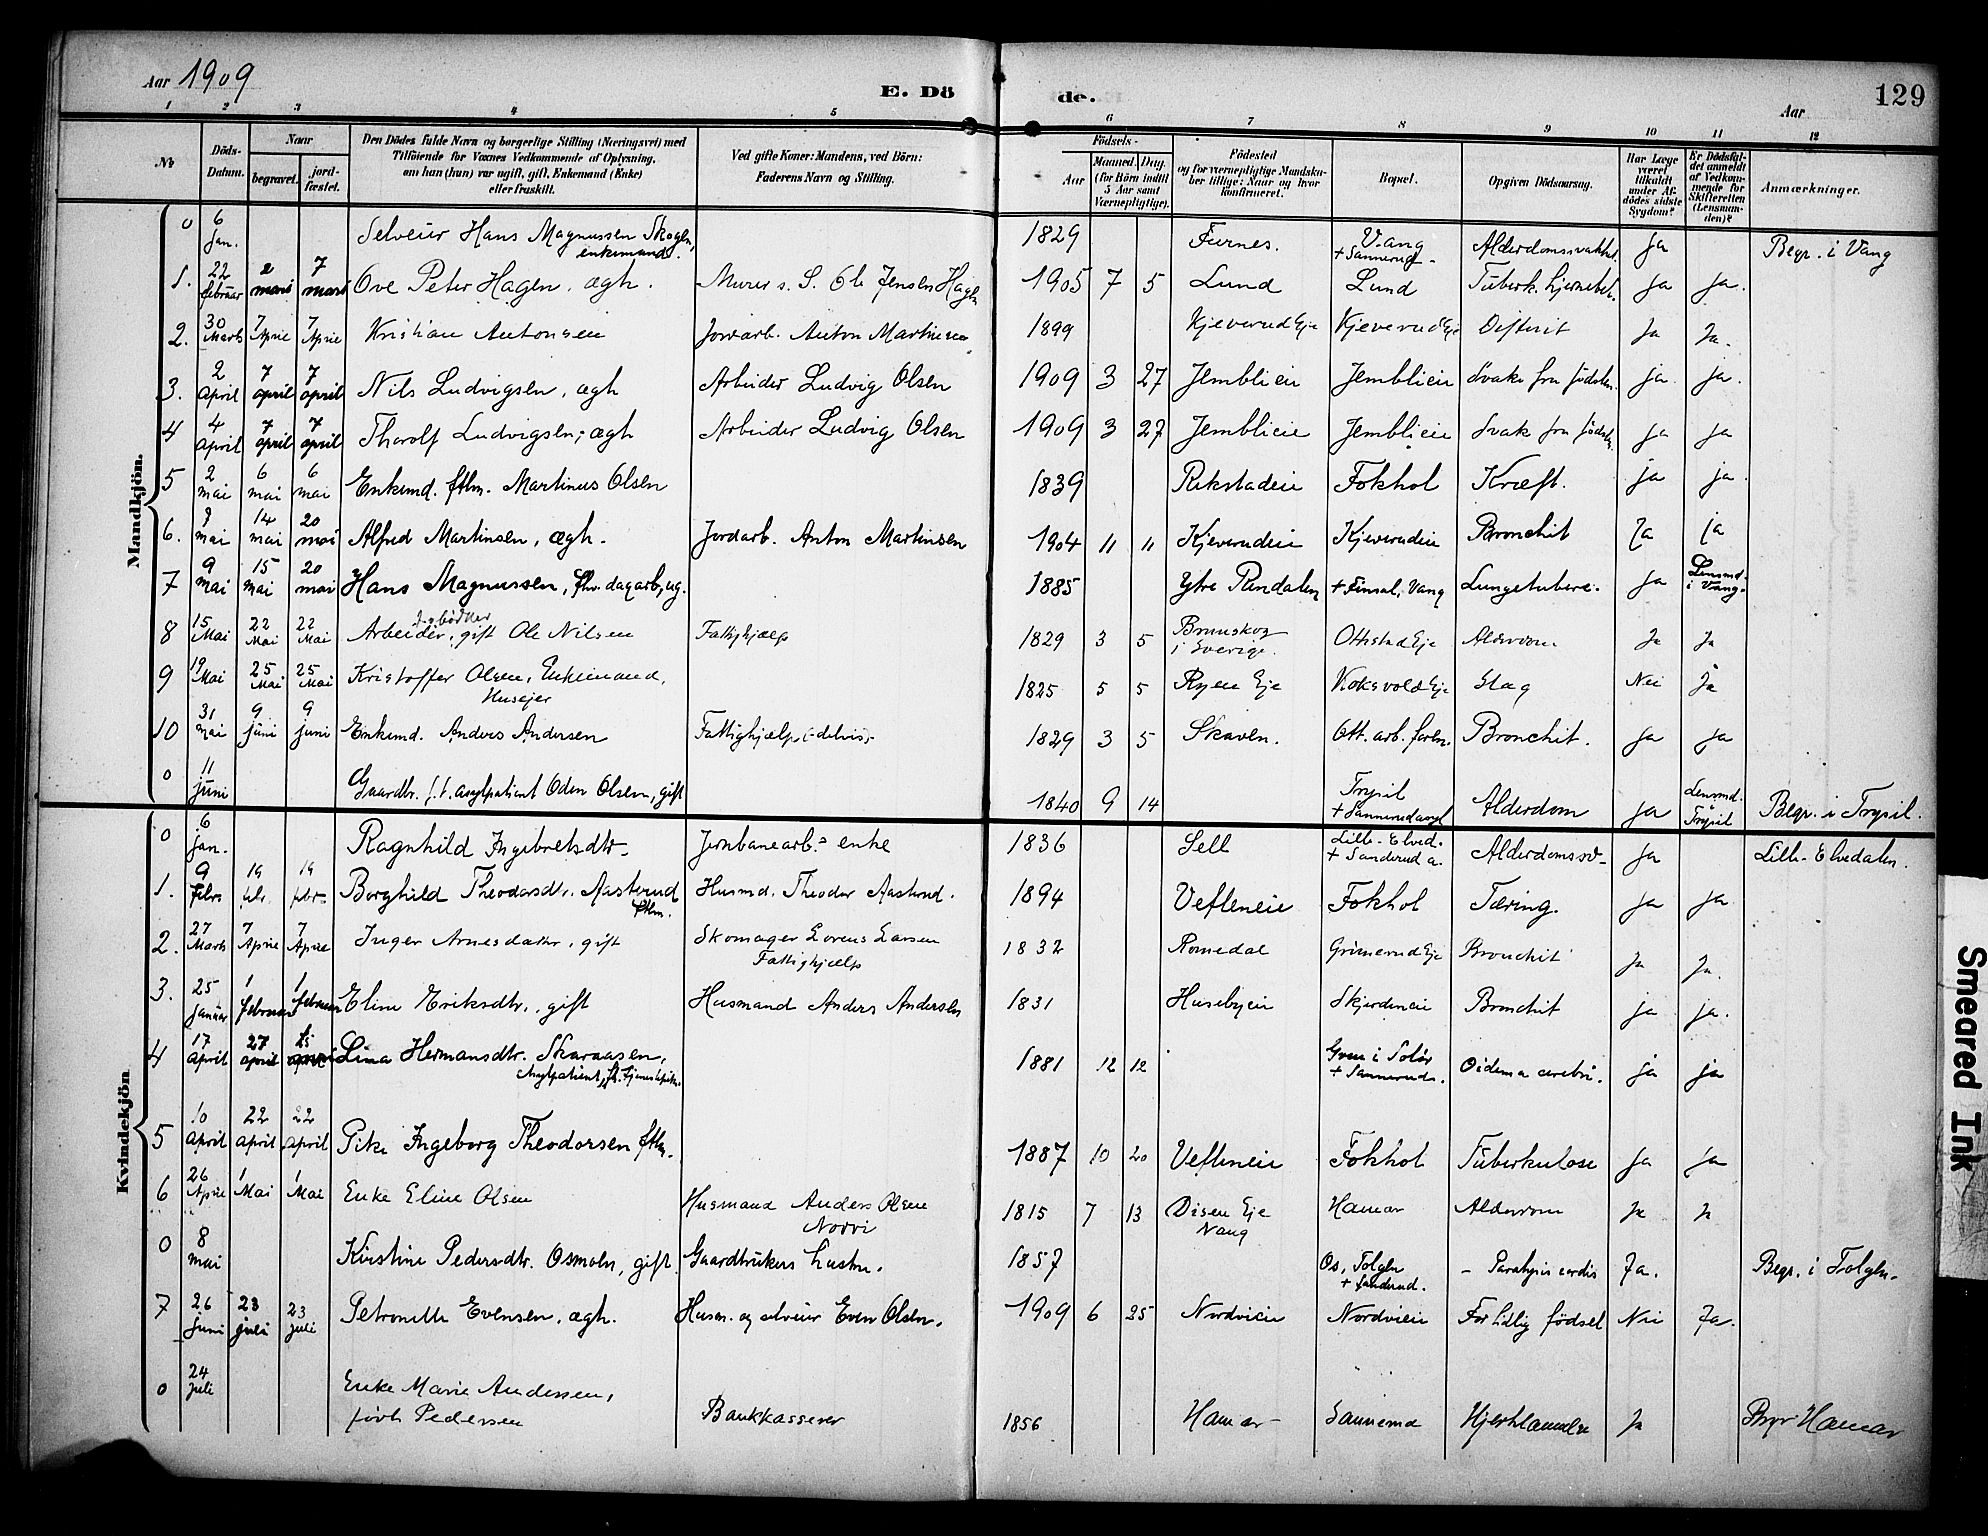 Aar 1909
E. Dö
de.
Aar
129
1 2 3 4 5 6 7 8 9 10 11 12
№
Döds-Datum.
Naar
begravet.
jord-fæstet.
Den Dödes fulde Navn og borgerlige Stilling (Næringsvei) med
Tilföiende for Voxnes Vedkommende af Oplysning,
om han (hun) var ugift, gift, Enkemand (Enke)
eller fraskilt.
Ved gifte Koner: Mandens, ved Börn:
Faderens Navn og Stilling.
Födsels-
Aar
Maaned. Dag.
(for Börn indtil
5 Aar samt
Værnepligtige).
Födested
og for værnepligtige Mandska-
ber tillige: Naar og hvor
konfirmeret.
Bopæl.
Opgiven Dödsaarsag.
Har Læge
været
tilkaldt
under Af-
dödes sidste
Sygdom?
Er Dödsfal-
det anmeldt
af Vedkom-
mende for
Skifteretten
(Lensman-
den)?
Anmærkninger.
Mandkjön.
0 6 Jan. Selveier Hans Magnussen Skogen, enkemand. 1829 Furnes. Vang + Sannerud - Alderdomssvakhet Ja Begr. i Vang
1. 22 februar 2 mars 7 mars Ove Peter Hagen, ægh. Murer s. S. Ole Jensen Hagen 1905 7 5 Lund Lund Tuberk. hjernebet. Ja Ja.
2. 30 Marts 7 April 7 April Kristian Antonsen Jordarb. Anton Martinsen 1899 Kjeverud Eje Kjeverud Eje Difterit Ja Ja.
3. 2 April 7 april 7 april Nils Ludvigsen, ægh Arbeider Ludvig Olsen 1909 3 27 Jemblieie Jemblieie Svake fra fødselen. ja ja.
4 4 April 7 april 7 april Tharolf Ludvigsen, ægh Arbeider Ludvig Olsen 1909 3 27 Jemblieie Jemblieie Svak fra fødseln. ja ja
5 2 mai 6 mai 6 mai Enkemd. fthm. Martinus Olsen 1839 Rikstadeie Fokhol Kræft. ja ja
6. 8 mai 14 mai 20 mai Alfred Martinsen, ægh. Jordarb. Anton Martinsen 1904 11 11 Kjeverudeie Kjeverudeie Bronchit Ja ja
7 9 mai 15 mai 20 mai Hans Magnussen, fhv. dagarb, ug. 1885 Ytre Rendalen + Finsal, Vang Lungetuberc. Ja Lensmd. i Vang.
8 15 Mai 22 Mai 22 Mai Arbeider, gift Ole Nilsen Fattighjælp 1829 3 5 Brunskog i Sverige. Ottestad Eje Alderdom Ja Ja
9 19 Mai 25 Mai 25 Mai Kristoffer Olsen, Enkemand, Husejer 1825 5 5 Ryen Eje Koksvold Eje Slag Nei Ja
10 31 mai 9 juni 9 juni Enkemd. Anders Andersen Fattighjælp, (-delvis)- 1829 3 5 Skaven. Ott. arb. foren. Bronchit. Ja Ja
0 11 juni Gaardbr. f. t. asylpatient Oden Olsen, gift 1840 9 14 Trysil + Sannerudasyl Alderdom Ja Lensmd. i Trysil Begr. i Trysil.
Kvindekjön.
0 6 jan. Ragnhild Ingebretsdtr. Jernbanearb.s enke 1836 Sell Lille-Elved. + Sanderud a. Alderdomssv- Ja Lille-Elvedalen.
1. 9 febr. 19 febr. 19 febr. Borghild Theodorsdtr. Aasterud fthm. Husmd. Theodor Aasterud. 1894 Vefleneie Fokhol Tæring. Ja Ja
2. 27 Marts 7 April 7 April Inger Arnesdatter, gift Skomager Lorens Larsen Fattighjælp 1832 Romedal Grimerud Eje Bronchit Ja Ja.
3. 25 januar 1 februar 1 februar Eline Eriksdtr., gift Husmand Anders Andersen 1831 Husebyeie Skjerdeneie Bronchit ja ja.
4 17 April 27 april april Lina Hermansdtr. Skaraasen, Asylpatient, fh. tjenestepike. 1881 12 12 Grue i Solør + Sannerud. Oidema cerebri. ja ja
5 10 April 22 April 22 April Pike Ingeborg Theodorsen fthm. 1887 10 20 Vefleneie Fokhol Tuberkulose Ja Ja
6 26 April 1 Mai 1 Mai Enke Eline Olsen Husmand Anders Olsen Nordvi 1815 7 13 Disen Eje Vang Hamar Alderdom Ja Ja
0 8 mai Kirstine Pedersdtr. Osmoen, gift. Gaardbrukers hustru. 1857 Os, Tolgen + Sanderud. - Paralysis cordis Ja. Begr. i Tolgen.
7 26 juni 23 juli 23 juli Petronelle Evensen, ægh. Husm. og selveier Even Olsen. 1909 6 25 Nordvieie Nordvieie For tidlig födsel Nei Ja.
0 24 Juli Enke Marie Andersen, født Pedersen Bankkasserer 1856 Hamar - Sannerud Hjertelammelse Ja Begr Hamar
Smeared Ink